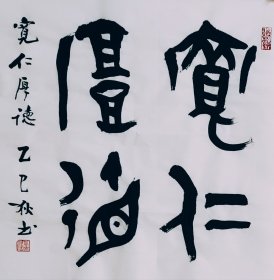 寬仁
厚德
寬仁厚德 乙巳秋书